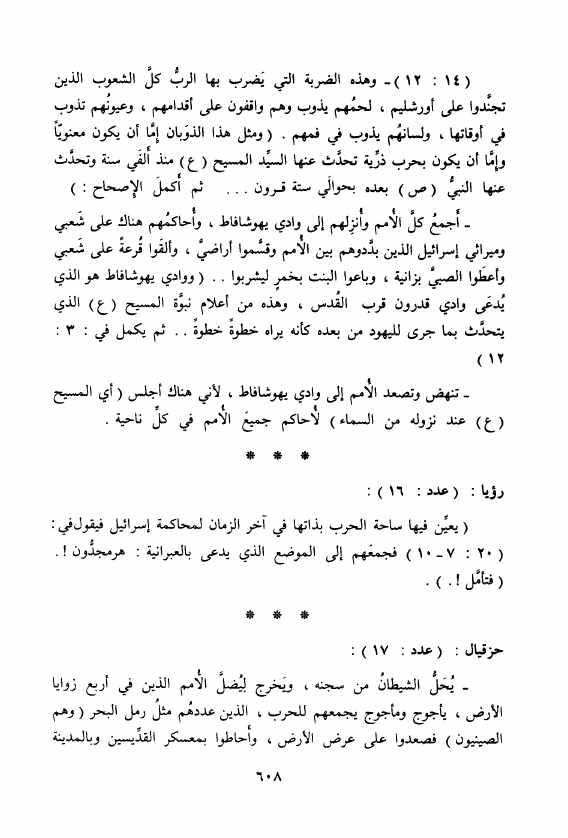 ( ١٤ : ١٢ ) ـ وهذه الضربة التي يَضرب بها الربُّ كلَّ الشعوب الذين
تجنَّدوا على أورشليم ، لحمُهم يذوب وهم واقفون على أقدامهم ، وعيونُهم تذوب
في أوقاتها ، ولسانهُم يذوب في فمهم . ( ومثل هذا الذوَبان إمَّا أن يكون معنويّاً
وإمَّا أن يكون بحرب ذرِّية تحدَّث عنها السيِّد المسيح (ع) منذ ألفَي سنة وتحدَّث
عنها النبيُّ (ص) بعده بحوالَي ستة قـرون ... ثم أكملَ الإصحاح : )
ـ أَجمعُ كلَّ الأُمم وأُنزِلهم إلى وادي يهوشافاط ، وأُحاكمُهم هناك على شَعبي
وميراثي إسرائيل الذين بدَّدوهم بين الأُمم وقسَّموا أراضيَّ ، وألقَوا قُرعةً على شَعبي
وأعطَوا الصبيَّ بزانية ، وباعوا البنت بخمرٍ ليشربوا .. ( ووادي يهوشافاط هو الذي
يُدعَى وادي قدرون قرب القُدس ، وهذه من أعلام نبوَّة المسيح (ع) الذي
يتحدَّث بما جرى لليهود من بعده كأنه يراه خطوةً خطوةً .. ثم يكمل في : ٣ :
١٢ )
ـ تنهض وتصعد الأُمم إلى وادي يهوشافاط ، لأني هناك أجلس ( أي المسيح
(ع) عند نزوله من السماء ) لأُحاكم جميعَ الأُمم في كلِّ ناحية .
* * *
رؤيا : ( عدد : ١٦ ) :
( يعيِّن فيها ساحة الحرب بذاتها في آخر الزمان لمحاكمة إسرائيل فيقول في :
( ٢٠ : ٧ ـ ١٠ ) فجمعَهم إلى الموضع الذي يدعى بالعبرانية : هرمجدُّون ! .
( فتأمَّل ! . ) .
* * *
حزقيال : ( عدد : ١٧ ) :
ـ يُحَلُّ الشيطانُ من سجنه ، ويَخرج لِيُضلَّ الأُمم الذين في أربع زوايا
الأرض ، يأجوج ومأجوج يجمعهم للحرب ، الذين عددهُم مثلُ رمل البحر ( وهم
الصينيون ) فصعدوا على عرض الأرض ، وأَحاطوا بمعسكر القدِّيسين وبالمدينة
٦٠٨